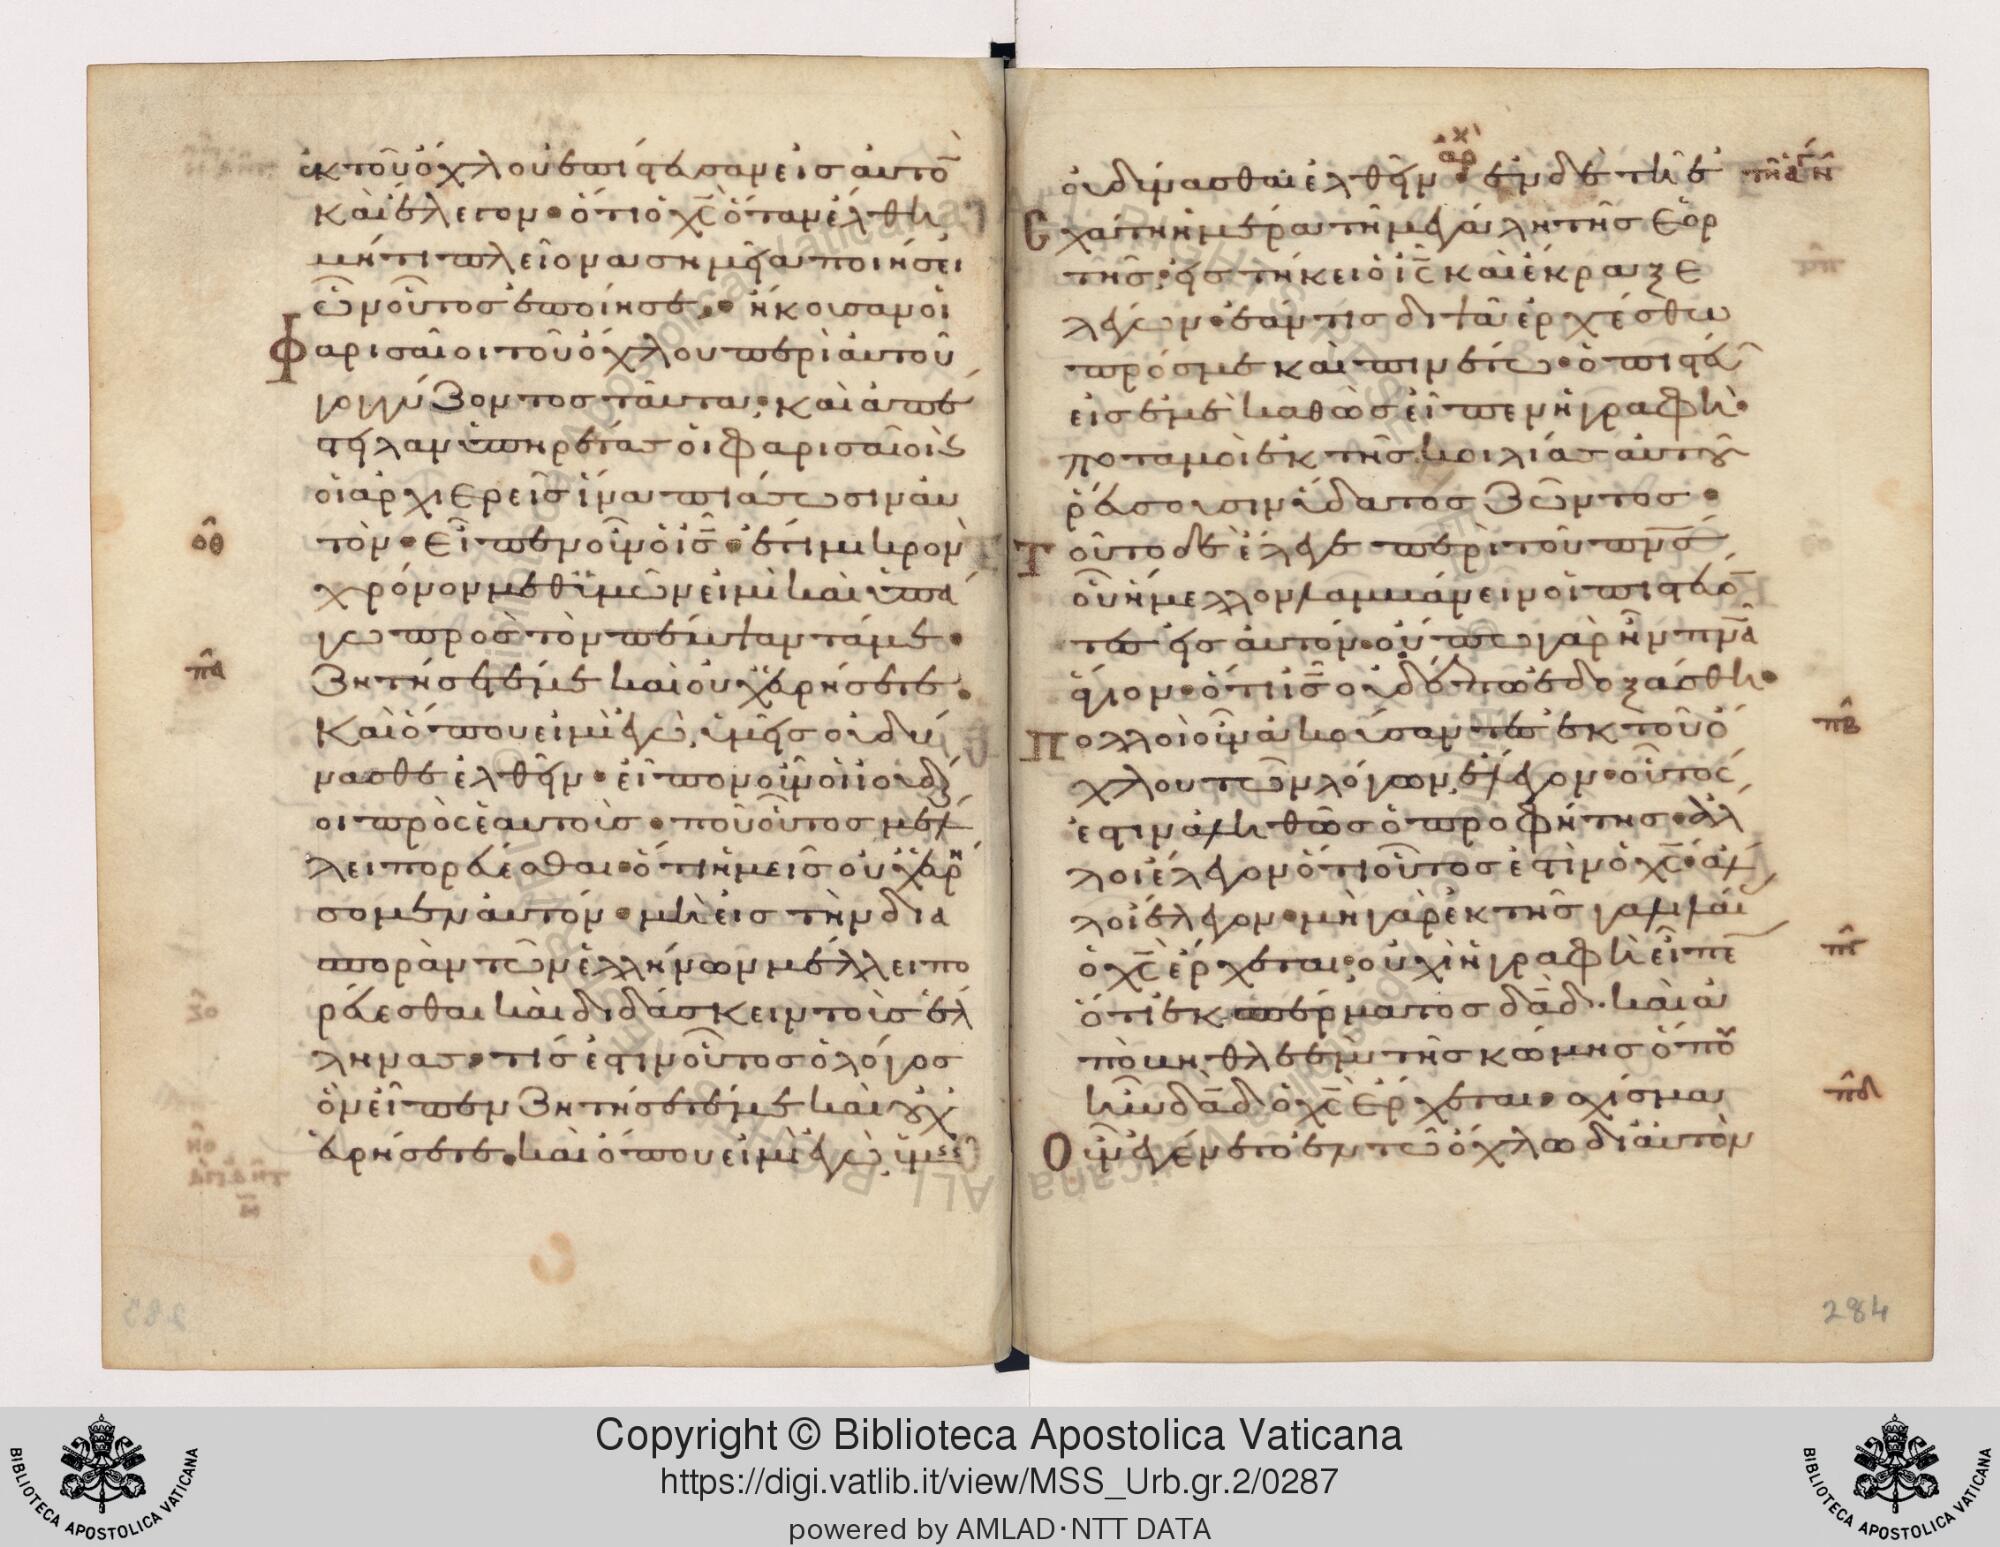 ἐκ τοῦ ὄχλου ἐπίστευσαν εἰς αὐτὸ̄
καὶ ἔλεγον· ὅτι ὁ χ̅ς̅ ὅταν ἔλθη
μήτι πλείονα σημεῖα ποιήσει
ὧν οὗτος ἐποίησε· ἤκουσαν οἱ
Φαρισαῖοι τοῦ ὄχλου περὶ αὐτοῦ
γογγύζοντος ταῦτα, καὶ ἀπέ
στειλαν ὑπηρέτας οἱ φαρισαῖοι ϗ
οἱ ἀρχιερεῖς ἵνα πιάσωσιν αυ
ο̅θ̅
τόν· εἶπεν οὖν ὁ ι̅ς̅· ἔτι μικρὸν
χρόνον μεθ' ὑμῶν εἰμὶ καὶ ὑπά
γω πρὸς τὸν πέμψαντά με·
π̅α̅
Ζητήσετέ με καὶ οὐχ εὑρήσετε·
καὶ ὅπου εἰμὶ ἐγὼ, ὑμεῖς οὐ δύ
νασθε ἐλθεῖν· εἶπον οὖν οἱ ἰουδαῖ
οι πρὸς ἑαυτούς· ποῦ οὗτος μέλ
λει πορεύεσθαι· ὅτι ἡμεῖς οὐχ εὑρή
σομεν αὐτόν· μὴ εἰς τὴν δια
σπορὰν τῶν ἑλλήνων μέλλει πο
ρεύεσθαι καὶ διδάσκειν τοὺς ἕλ
ληνας· τίς ἐστιν οὗτος ὁ λόγος
ὃν εἶπεν ζητήσετέ με καὶ οὐχ
εὑρήσετε· καὶ ὅπου εἰμὶ ἐγὼ, ὑμεῖς
οὐ δύνασθαι ἐλθεῖν· ἐν δὲ τῇ ἐ
Σχάτη ἡμέρα τῇ μεγάλη τῆς ἑορ
τῆς· εἱστήκει ὁ ι̅ς̅ καὶ ἔκραξε
λέγων· ἐάν τις διψᾶ ἐρχέσθω
πρός με καὶ πινέτω· ὁ πιστεύω̅
εἰς ἐμὲ καθὼς εἶπεν ἡ γραφὴ·
ποταμοὶ ἐκ τῆς κοιλίας αὐτοῦ
ῥεύσουσιν ὕδατος ζῶντος·
Τοῦτο δὲ ἔλεγε περὶ τοῦ π̅ν̅ς̅
οὗ ἤμελλον λαμβάνειν οἱ πιστεύο̅
τες εἰς αὐτόν· οὔπω γὰρ ἦν π̅ν̅α̅
ἅγιον· ὅτι ι̅ς̅ οὐδέπω ἐδοξάσθη·
π̅β̅
Πολλοὶ οὖν ἀκούσαντες ἐκ τοῦ ὄ
χλου τῶν λόγων, ἔλεγον· οὗτός
ἐστιν ἀληθῶς ὁ προφήτης· ἄλ
λοι ἔλεγον ὅτι οὗτος ἐστὶν ὁ χ̅ς̅· ἄλ
λοι ἔλεγον· μὴ γὰρ ἐκ τῆς γαλιλαί
π̅γ̅
ὁ χ̅ς̅ ἔρχεται· οὐχὶ ἡ γραφὴ εἶπε̅
ὅτι ἐκ σπέρματος δ̅α̅δ̅· καὶ ἀ
πὸ βηθλεὲμ τῆς κώμης ὅπου
π̅δ̅
ἦν δ̅α̅δ̅ ὁ χ̅ς̅ ἔρχεται· σχίσμα
Οὖν ἐγένετο ἐν τῷ ὄχλω δι' αὐτὸν
284
Copyright © Biblioteca Apostolica Vaticana
https://digi.vatlib.it/view/MSS_Urb.gr.2/0287
powered by AMLAD·NTT DATA
BIBLIOTECA APOSTOLICA VATICANA
BIBLIOTECA APOSTOLICA VATICANA